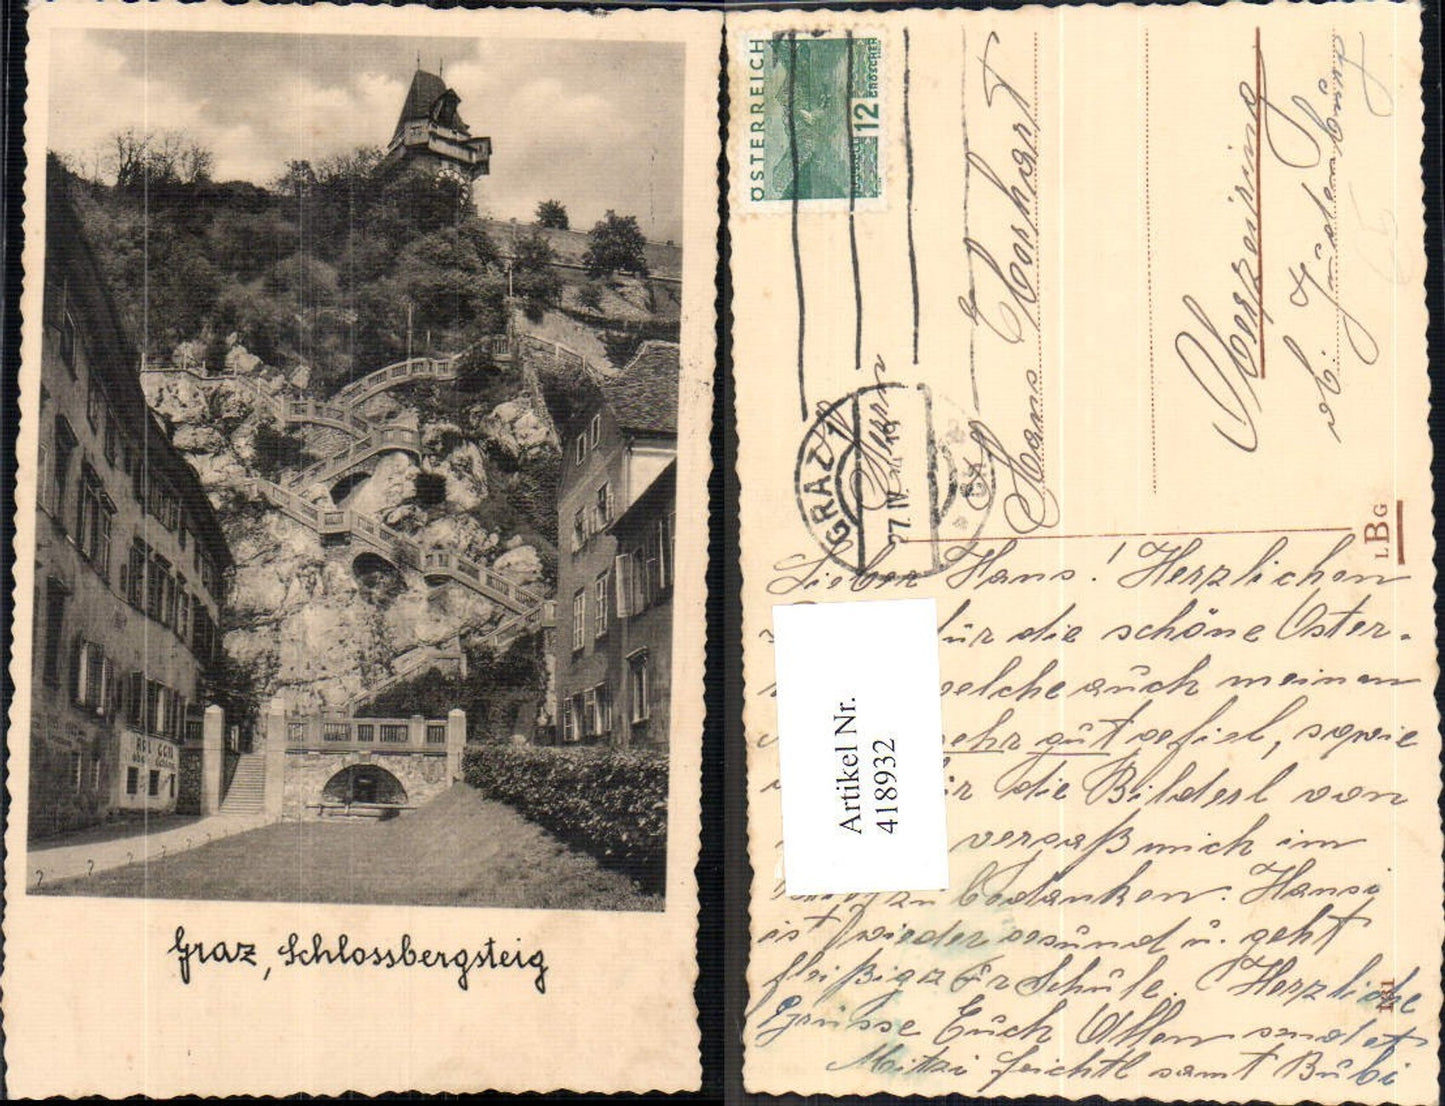 Graz, Schlossbergsteig
ÖSTERREICH
12
GROSCHEN
GRAZ 1
Herrn
Hans
ob. Judenburg
LBG
Artikel Nr.
418932
Lieber Hans! Herzlichen
für die schöne Oster-
welche auch meinen
sehr gut gefiel, sowie
die Bilderl von
vergaß mich im
zu bedanken. Hansi
ist wieder gesund u. geht
fleißig zur Schule. Herzliche
Grüsse Euch Allen sendet
Mitzi Feichtl samt Bubi